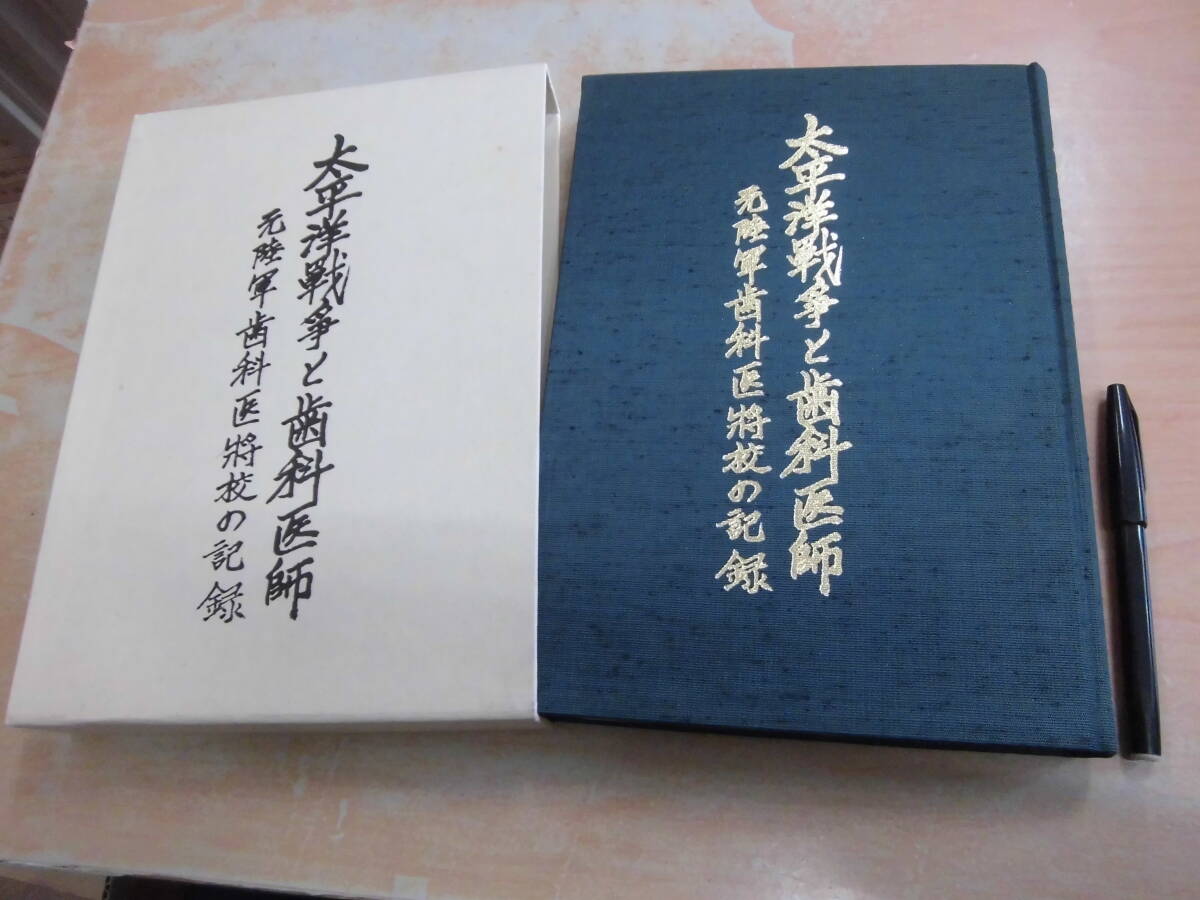 太平洋戦争と歯科医師
元陸軍歯科医将校の記録
太平洋戦争と歯科医師
元陸軍歯科医将校の記録